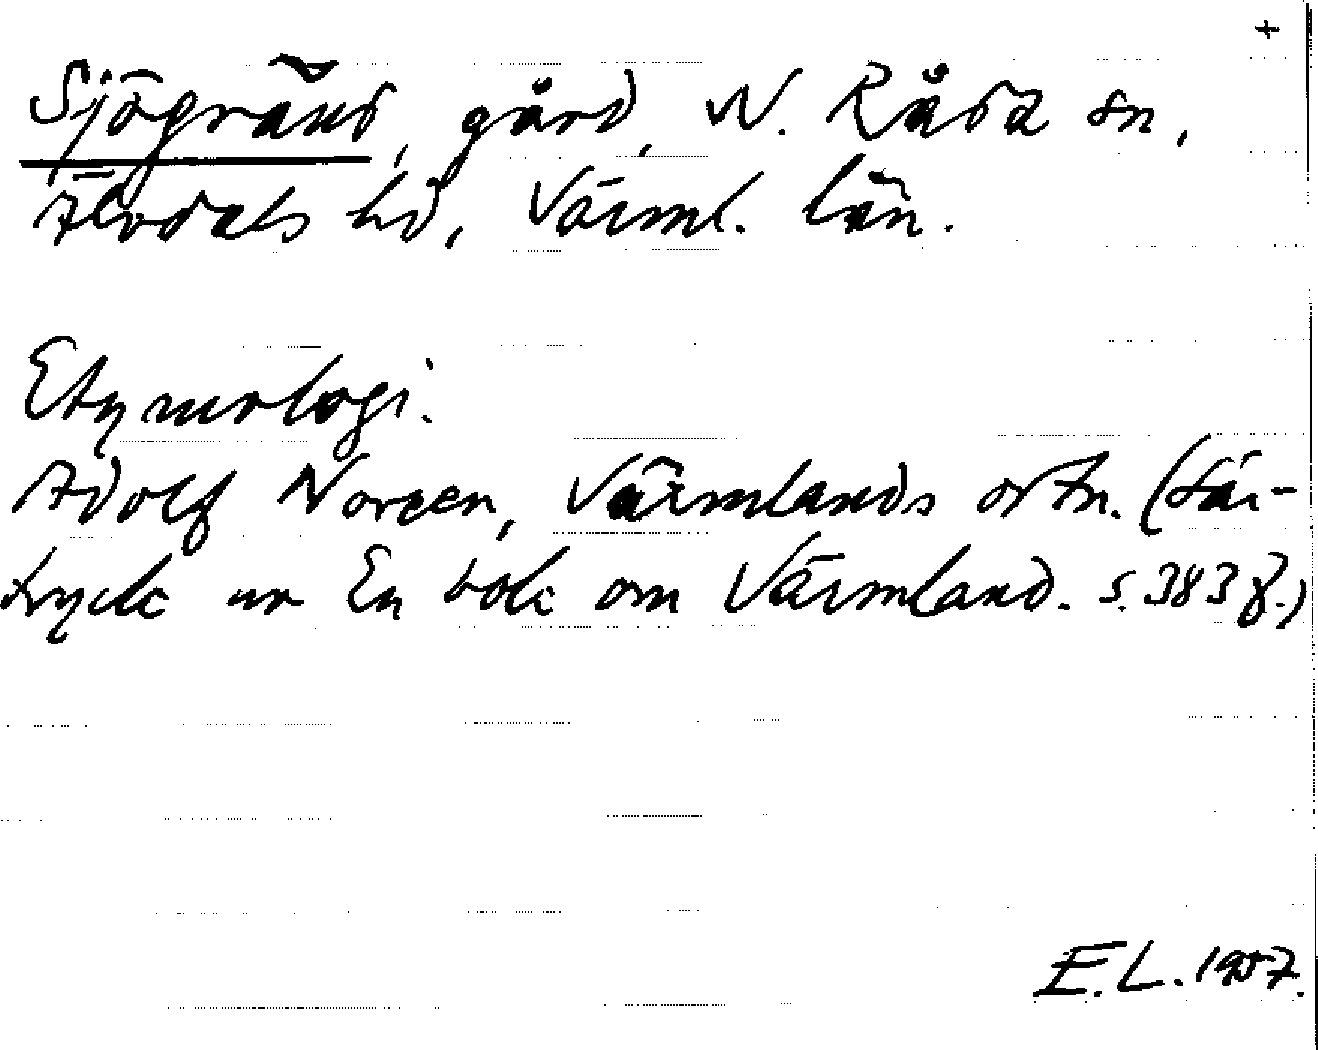 +
Sjögränd, gård, N. Råda sn,
Älvdals hd, Värml. län.
Etymologi.
Adolf Noreen, Värmlands ortn. (sär-
tryck ur En bok om Värmland. s. 383 f.)
E.L. 1957.